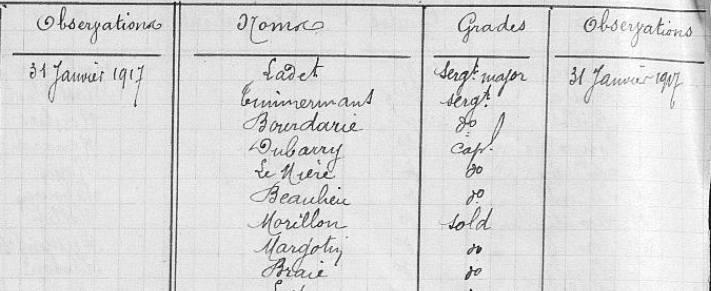 Observations Noms Grades Observations
31 Janvier 1917 Ladet sergt major 31 Janvier 1917
Timmermans sergt
Bourdarie do
Dubarry cap.l
Le Mière do
Beaulieu do
Morillon sold
Margotin do
Braie do